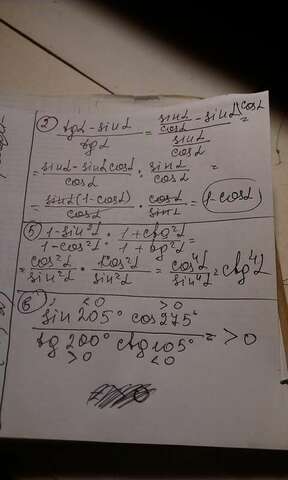 ② (tgα - sinα)/tgα = (sinα/cosα - sinα \cosα)/(sinα/cosα) =
= (sinα - sinα cosα)/cosα : sinα/cosα =
= (sinα(1-cosα))/cosα · cosα/sinα = 1-cosα
⑤ (1-sin²α)/(1-cos²α) · (1+ctg²α)/(1+tg²α) =
= cos²α/sin²α · cos²α/sin²α = cos⁴α/sin⁴α = ctg⁴α
⑥ <0 >0
(sin 205° cos 275°)/(tg 200° ctg 105°) = >0
>0 <0